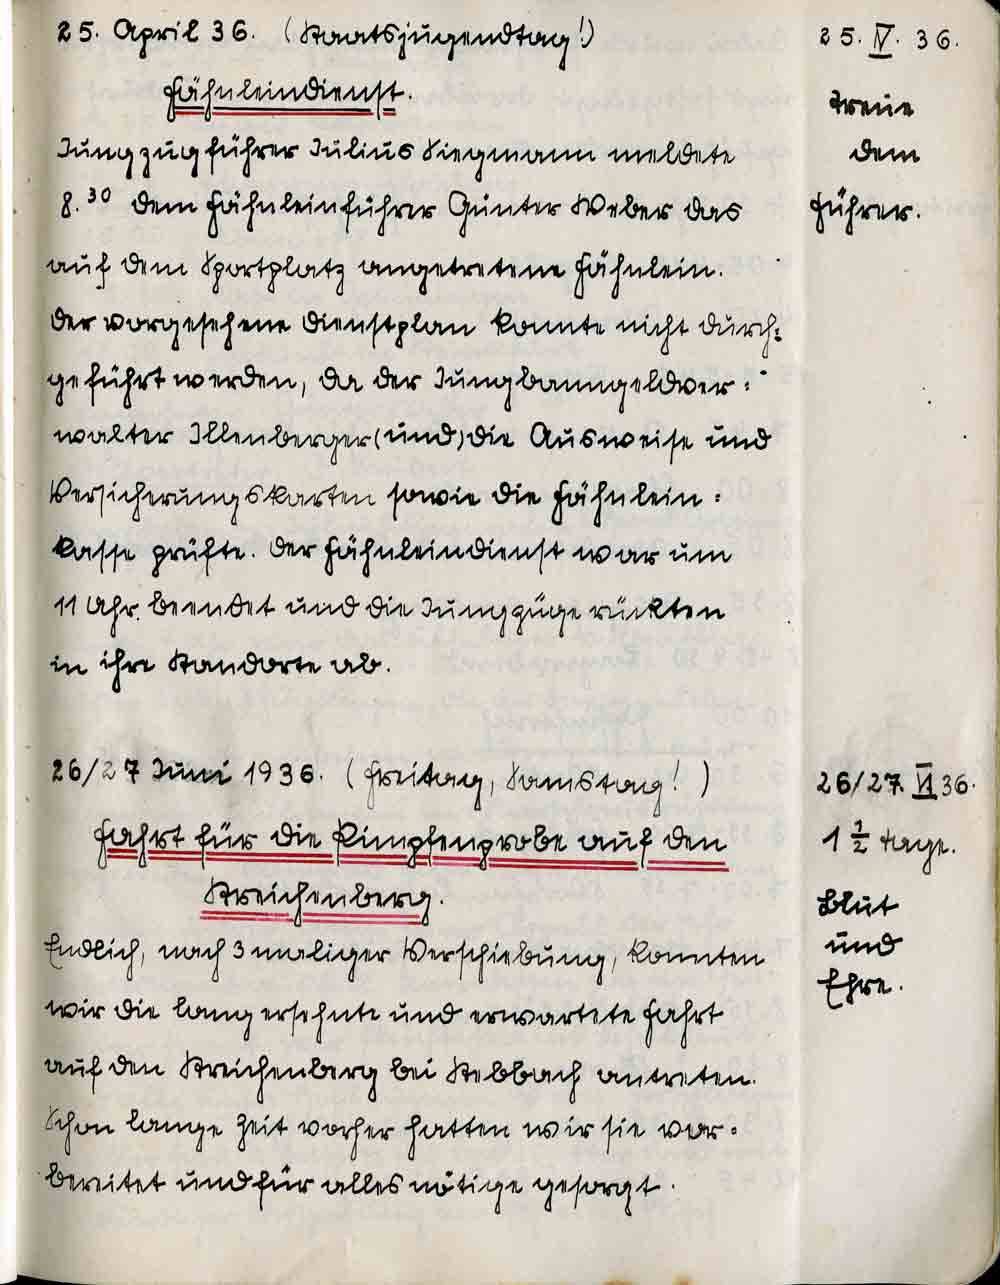 25. April 36. (Staatsjugendtag!)
Fähnleindienst.
Jungzugführer Julius Siegmann meldete
8.30 dem Fähnleinführer Günter Weber das
auf dem Sportplatz angetretene Fähnlein.
Der vorgesehene Dienstplan konnte nicht durch=
geführt werden, da der Jungbanngeldver=
walter Illenberger (und) die Ausweise und
Versicherungskarten sowie die Fähnlein=
kasse prüfte. Der Fähnleindienst war um
11 Uhr beendet und die Jungzüge rückten
in ihre Standorte ab.
25. IV. 36.
Treue
dem
Führer.
26/27 Juni 1936. (Freitag, Samstag!)
Fahrt für die Pimpfenprobe auf den
Streichenberg.
Endlich, nach 3 maliger Verschiebung, konnten
wir die langersehnte und erwartete Fahrt
auf den Streichenberg bei Stebbach antreten.
Schon lange Zeit vorher hatten wir sie vor=
bereitet und für alles nötige gesorgt.
26/27. VI 36.
1 1/2 Tage.
Blut
und
Ehre.